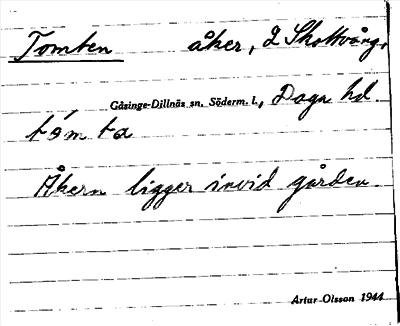 Tomten åker, 2 Skottvång,
Gåsinge-Dillnäs sn. Söderm. l., Daga hd.
tómta
Åkern ligger invid gården.
Artur Olsson 1944